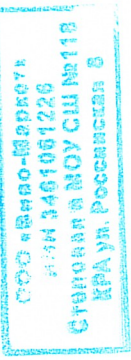 ООО «Виво-Маркет»
ИНН 3461061226
Столовая в МОУ СШ №118
КРА ул Российская 8